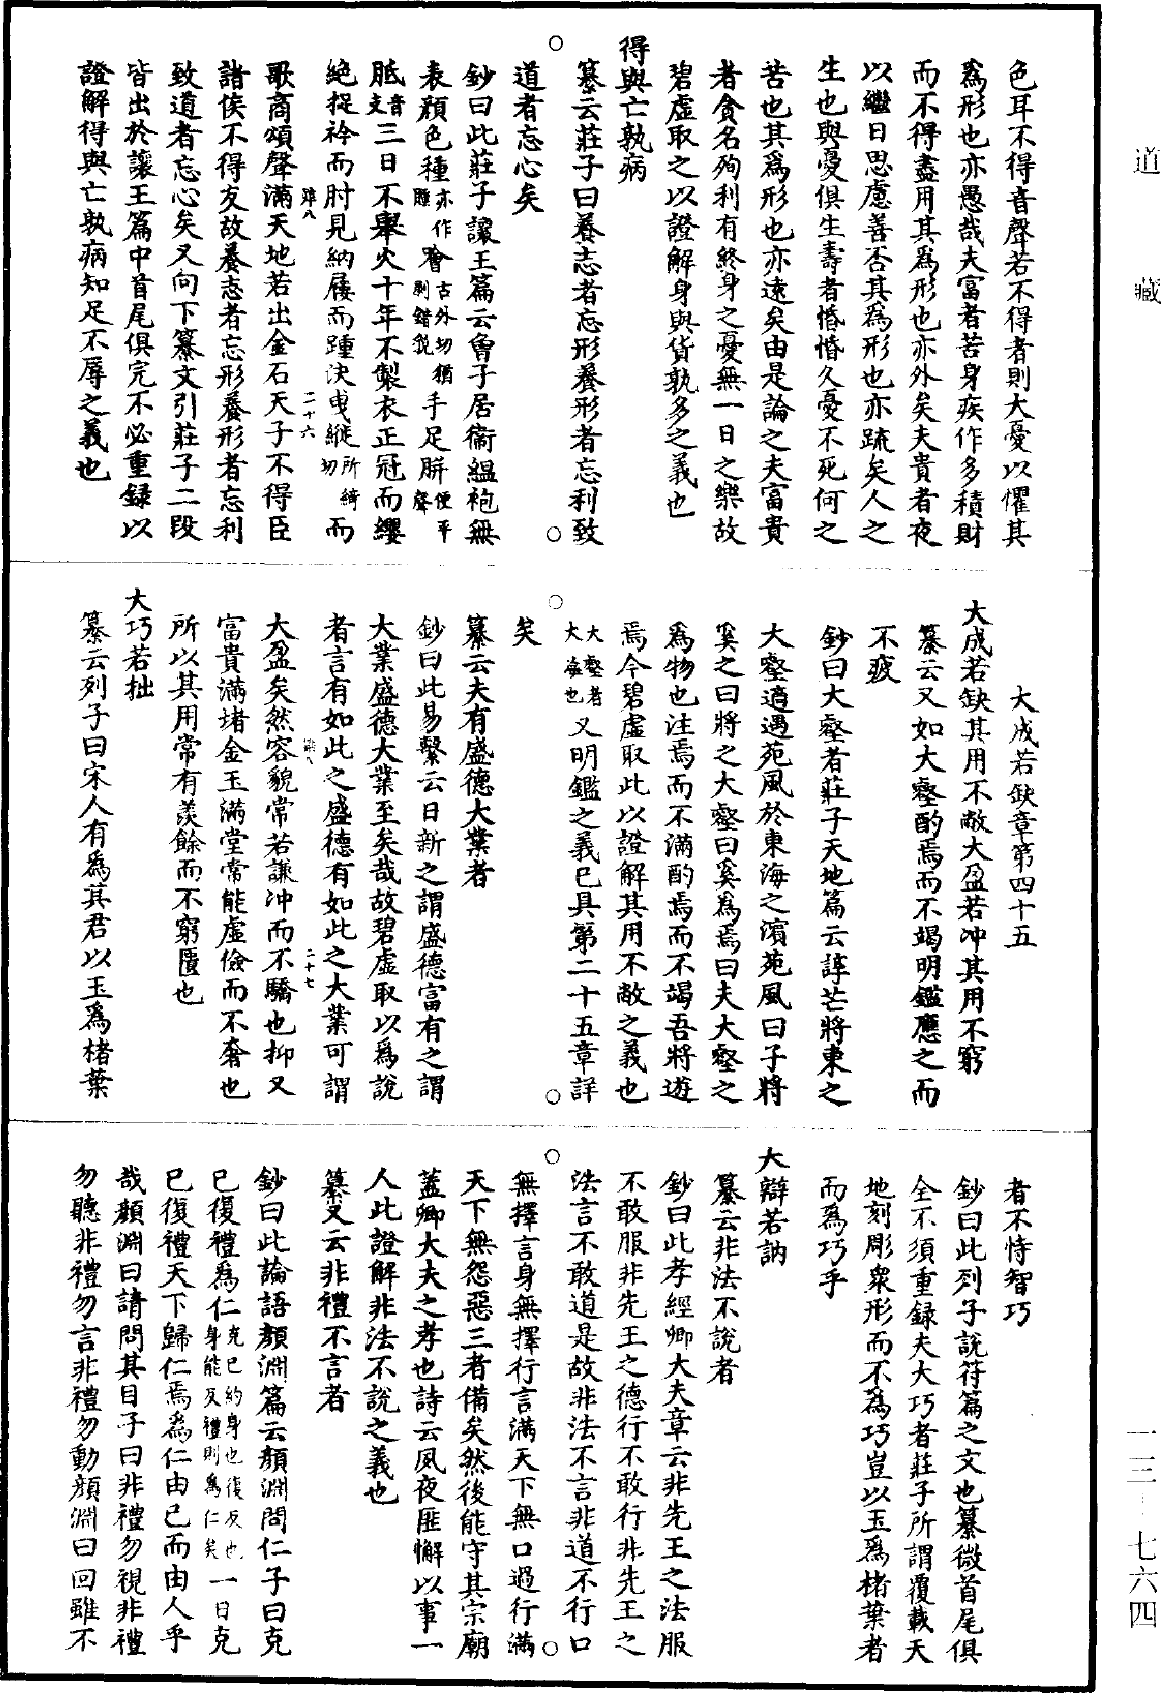 道藏
色耳不得音聲若不得者則大憂以懼其
爲形也亦愚哉夫富者苦身疾作多積財
而不得盡用其爲形也亦外矣夫貴者夜
以繼日思慮善否其爲形也亦疏矣人之
生也與憂俱生壽者惛惛久憂不死何之
苦也其爲形也亦遠矣由是論之夫富貴
者貪名殉利有終身之憂無一日之樂故
碧虛取之以證解身與貨孰多之義也
得與亡孰病
纂云莊子曰養志者忘形養形者忘利致
道者忘心矣
鈔曰此莊子讓王篇云曾子居衞縕袍無
表顏色種亦作腫噲古外切猶剽錯說手足胼便平聲
胝音支三日不舉火十年不製衣正冠而纓
絶捉衿而肘見納屨而踵決曳縰所綺切而
歌商頌聲滿天地若出金石天子不得臣
諸侯不得友故養志者忘形養形者忘利
致道者忘心矣又向下纂文引莊子二段
皆出於讓王篇中首尾俱完不必重録以
證解得與亡孰病知足不辱之義也
大成若缺章第四十五
大成若缺其用不敝大盈若冲其用不窮
纂云又如大壑酌焉而不竭明鑑應之而
不疲
鈔曰大壑者莊子天地篇云諄芒將東之
大壑適遇苑風於東海之濱苑風曰子將
奚之曰將之大壑曰奚爲焉曰夫大壑之
爲物也注焉而不滿酌焉而不竭吾將遊
焉今碧虛取此以證解其用不敝之義也
大壑者大海也又明鑑之義已具第二十五章詳
矣
纂云夫有盛德大業者
鈔曰此易繫云日新之謂盛德富有之謂
大業盛德大業至矣哉故碧虛取以爲說
者言有如此之盛德有如此之大業可謂
大盈矣然容貌常若謙冲而不驕也抑又
富貴滿堵金玉滿堂常能虛儉而不奢也
所以其用常有羨餘而不窮匱也
大巧若拙
纂云列子曰宋人有爲其君以玉爲楮葉
者不恃智巧
鈔曰此列子說符篇之文也纂微首尾俱
全不須重録夫大巧者莊子所謂覆載天
地刻彫衆形而不爲巧豈以玉爲楮葉者
而爲巧乎
大辯若訥
纂云非法不說者
鈔曰此孝經卿大夫章云非先王之法服
不敢服非先王之德行不敢行非先王之
法言不敢道是故非法不言非道不行口
無擇言身無擇行言滿天下無口過行滿
天下無怨惡三者備矣然後能守其宗廟
蓋卿大夫之孝也詩云夙夜匪懈以事一
人此證解非法不說之義也
纂又云非禮不言者
鈔曰此論語顏淵篇云顏淵問仁子曰克
已復禮爲仁克已約身也復反也身能反禮則爲仁矣一日克
已復禮天下歸仁焉爲仁由已而由人乎
哉顏淵曰請問其目子曰非禮勿視非禮
勿聽非禮勿言非禮勿動顏淵曰回雖不
二十六
二十七
一三-七六四